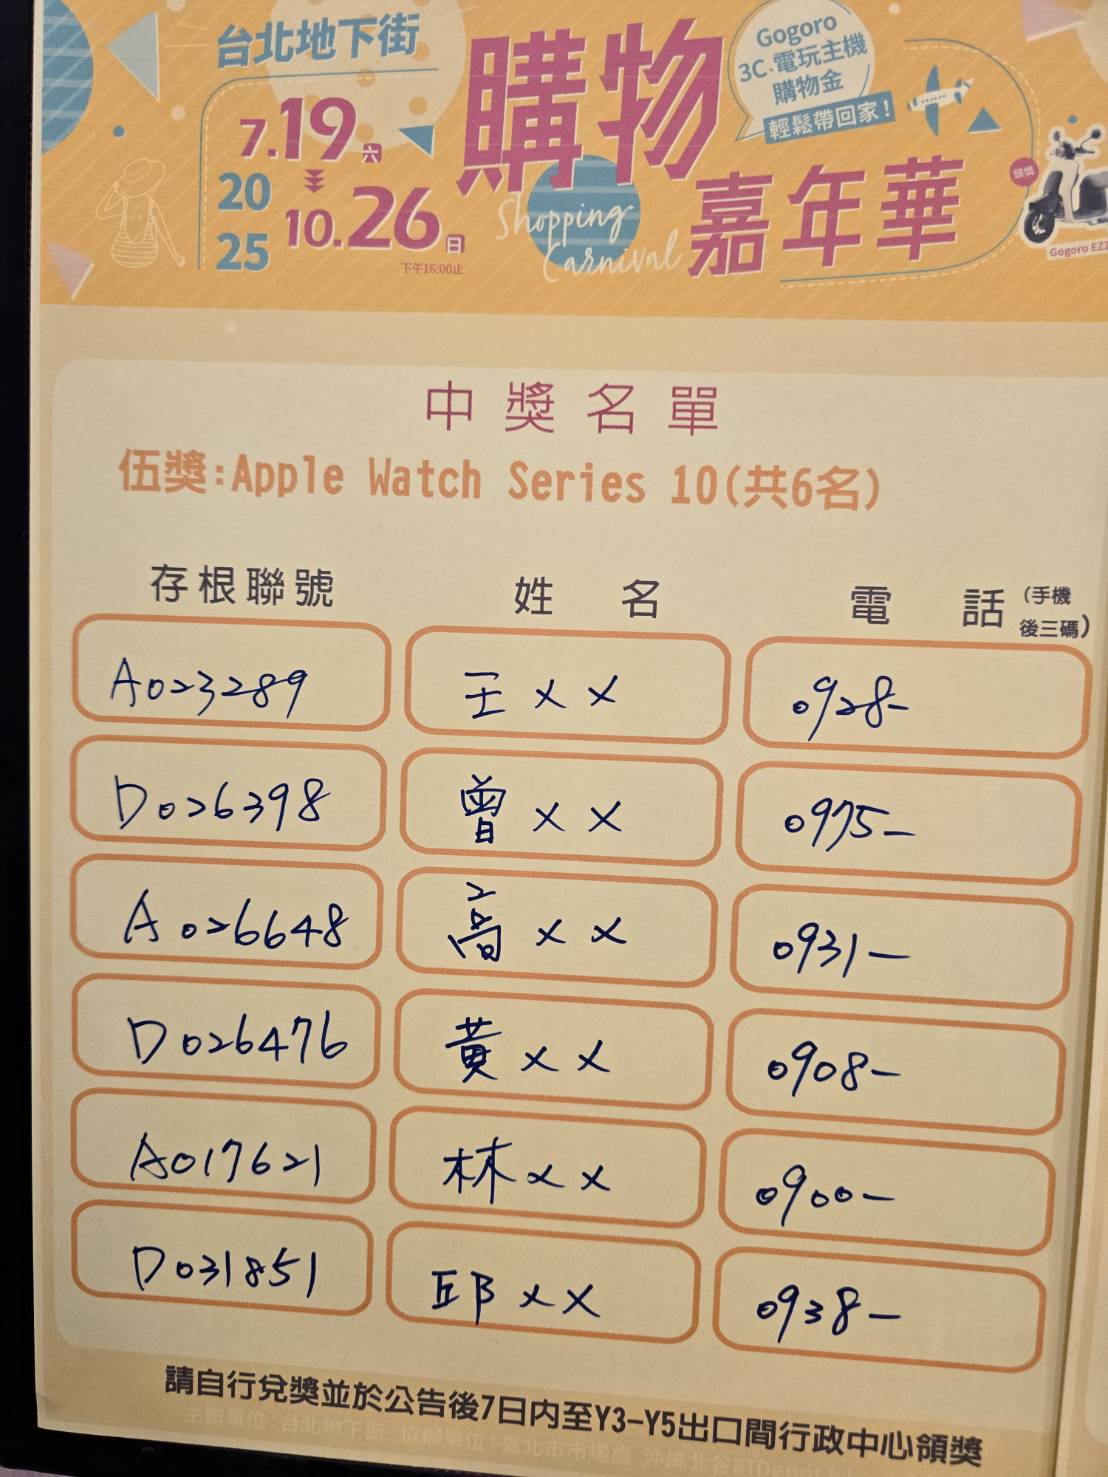 台北地下街
購物
Gogoro
3C、電玩主機
購物金
輕鬆帶回家!
7.19六
20
25
10.26日
下午16:00止
Shopping
Carnival
嘉年華
頭獎
Gogoro EZZ
中獎名單
伍獎:Apple Watch Series 10(共6名)
存根聯號 姓名 電話(手機後三碼)
A023289 王×× 0928-
D026398 曾×× 0975-
A026648 高×× 0931-
D026476 黃×× 0908-
A017621 林×× 0900-
D031851 邱×× 0938-
請自行兌獎並於公告後7日內至Y3-Y5出口間行政中心領獎
主辦單位:台北地下街 協辦單位:臺北市市場處